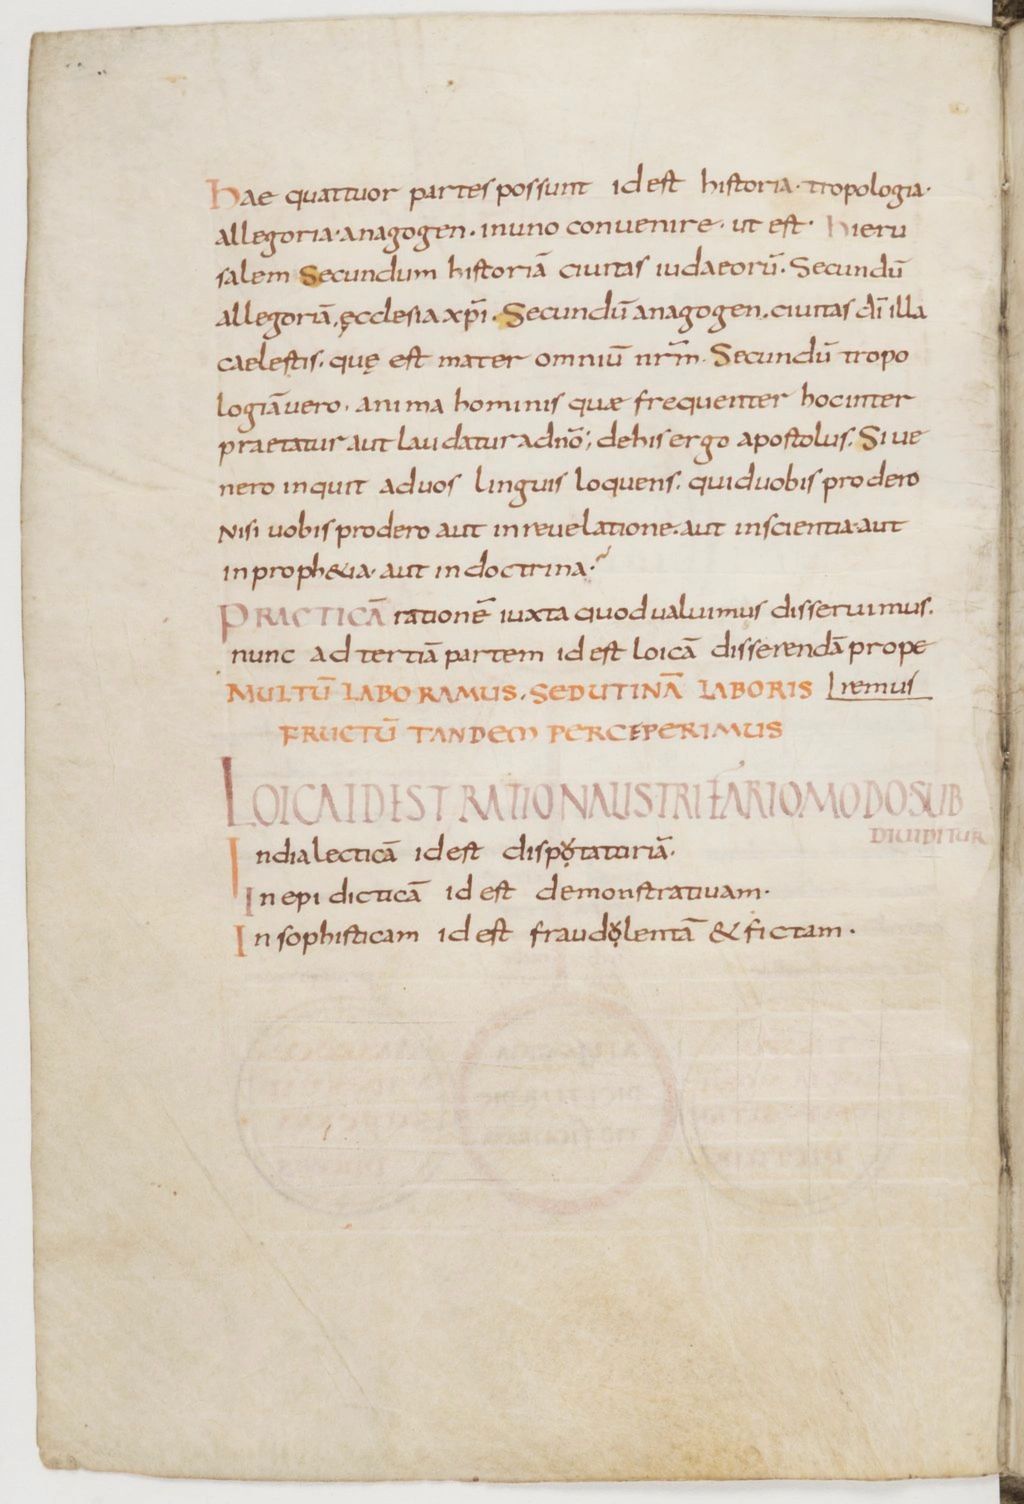 Hae quattuor partes possunt id est historia· tropologia·
allegoria·anagogen· inuno conuenire· ut est· hieru
salem Secundum historiā ciuitas iudaeorū· Secundū
allegoriā, ęcclesia xp̄i· Secundū anagogen, ciuitas dī illa
caelestis· quę est mater omniū nr̄m· Secundū tropo
logiā uero· anima hominis quæ frequenter hoc inter
praetatur aut laudatur ad nō; de his ergo apostolus· Si ue
nero inquit ad uos linguis loquens· quid uobis prodero
Nisi uobis prodero aut in reuelatione· aut in scientia· aut
in proph&ia· aut in doctrina·
PRACTICĀ rationē iuxta quod ualuimus disseruimus·
nunc ad tertiā partem id est loicā disserendā prope
remus
MULTŪ LABORAMUS· SED UT INĀ LABORIS
FRUCTŪ TANDEM PERCEPERIMUS
LOICA ID EST RATIONALIS TRIFARIO MODO SUB
DIUIDITUR
In dialecticā id est dispotatoriā·
In epidicticā id est demonstratiuam·
In sophisticam id est fraudolentā & fictam·